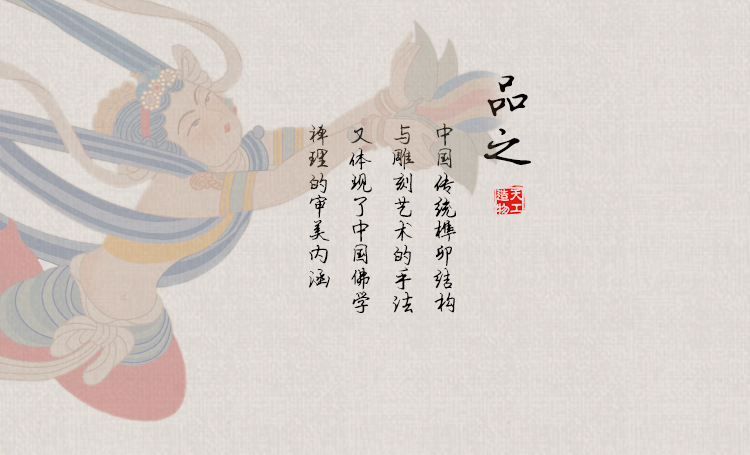 品之
天工
造物
中国传统榫卯结构
与雕刻艺术的手法
又体现了中国佛学
禅理的审美内涵